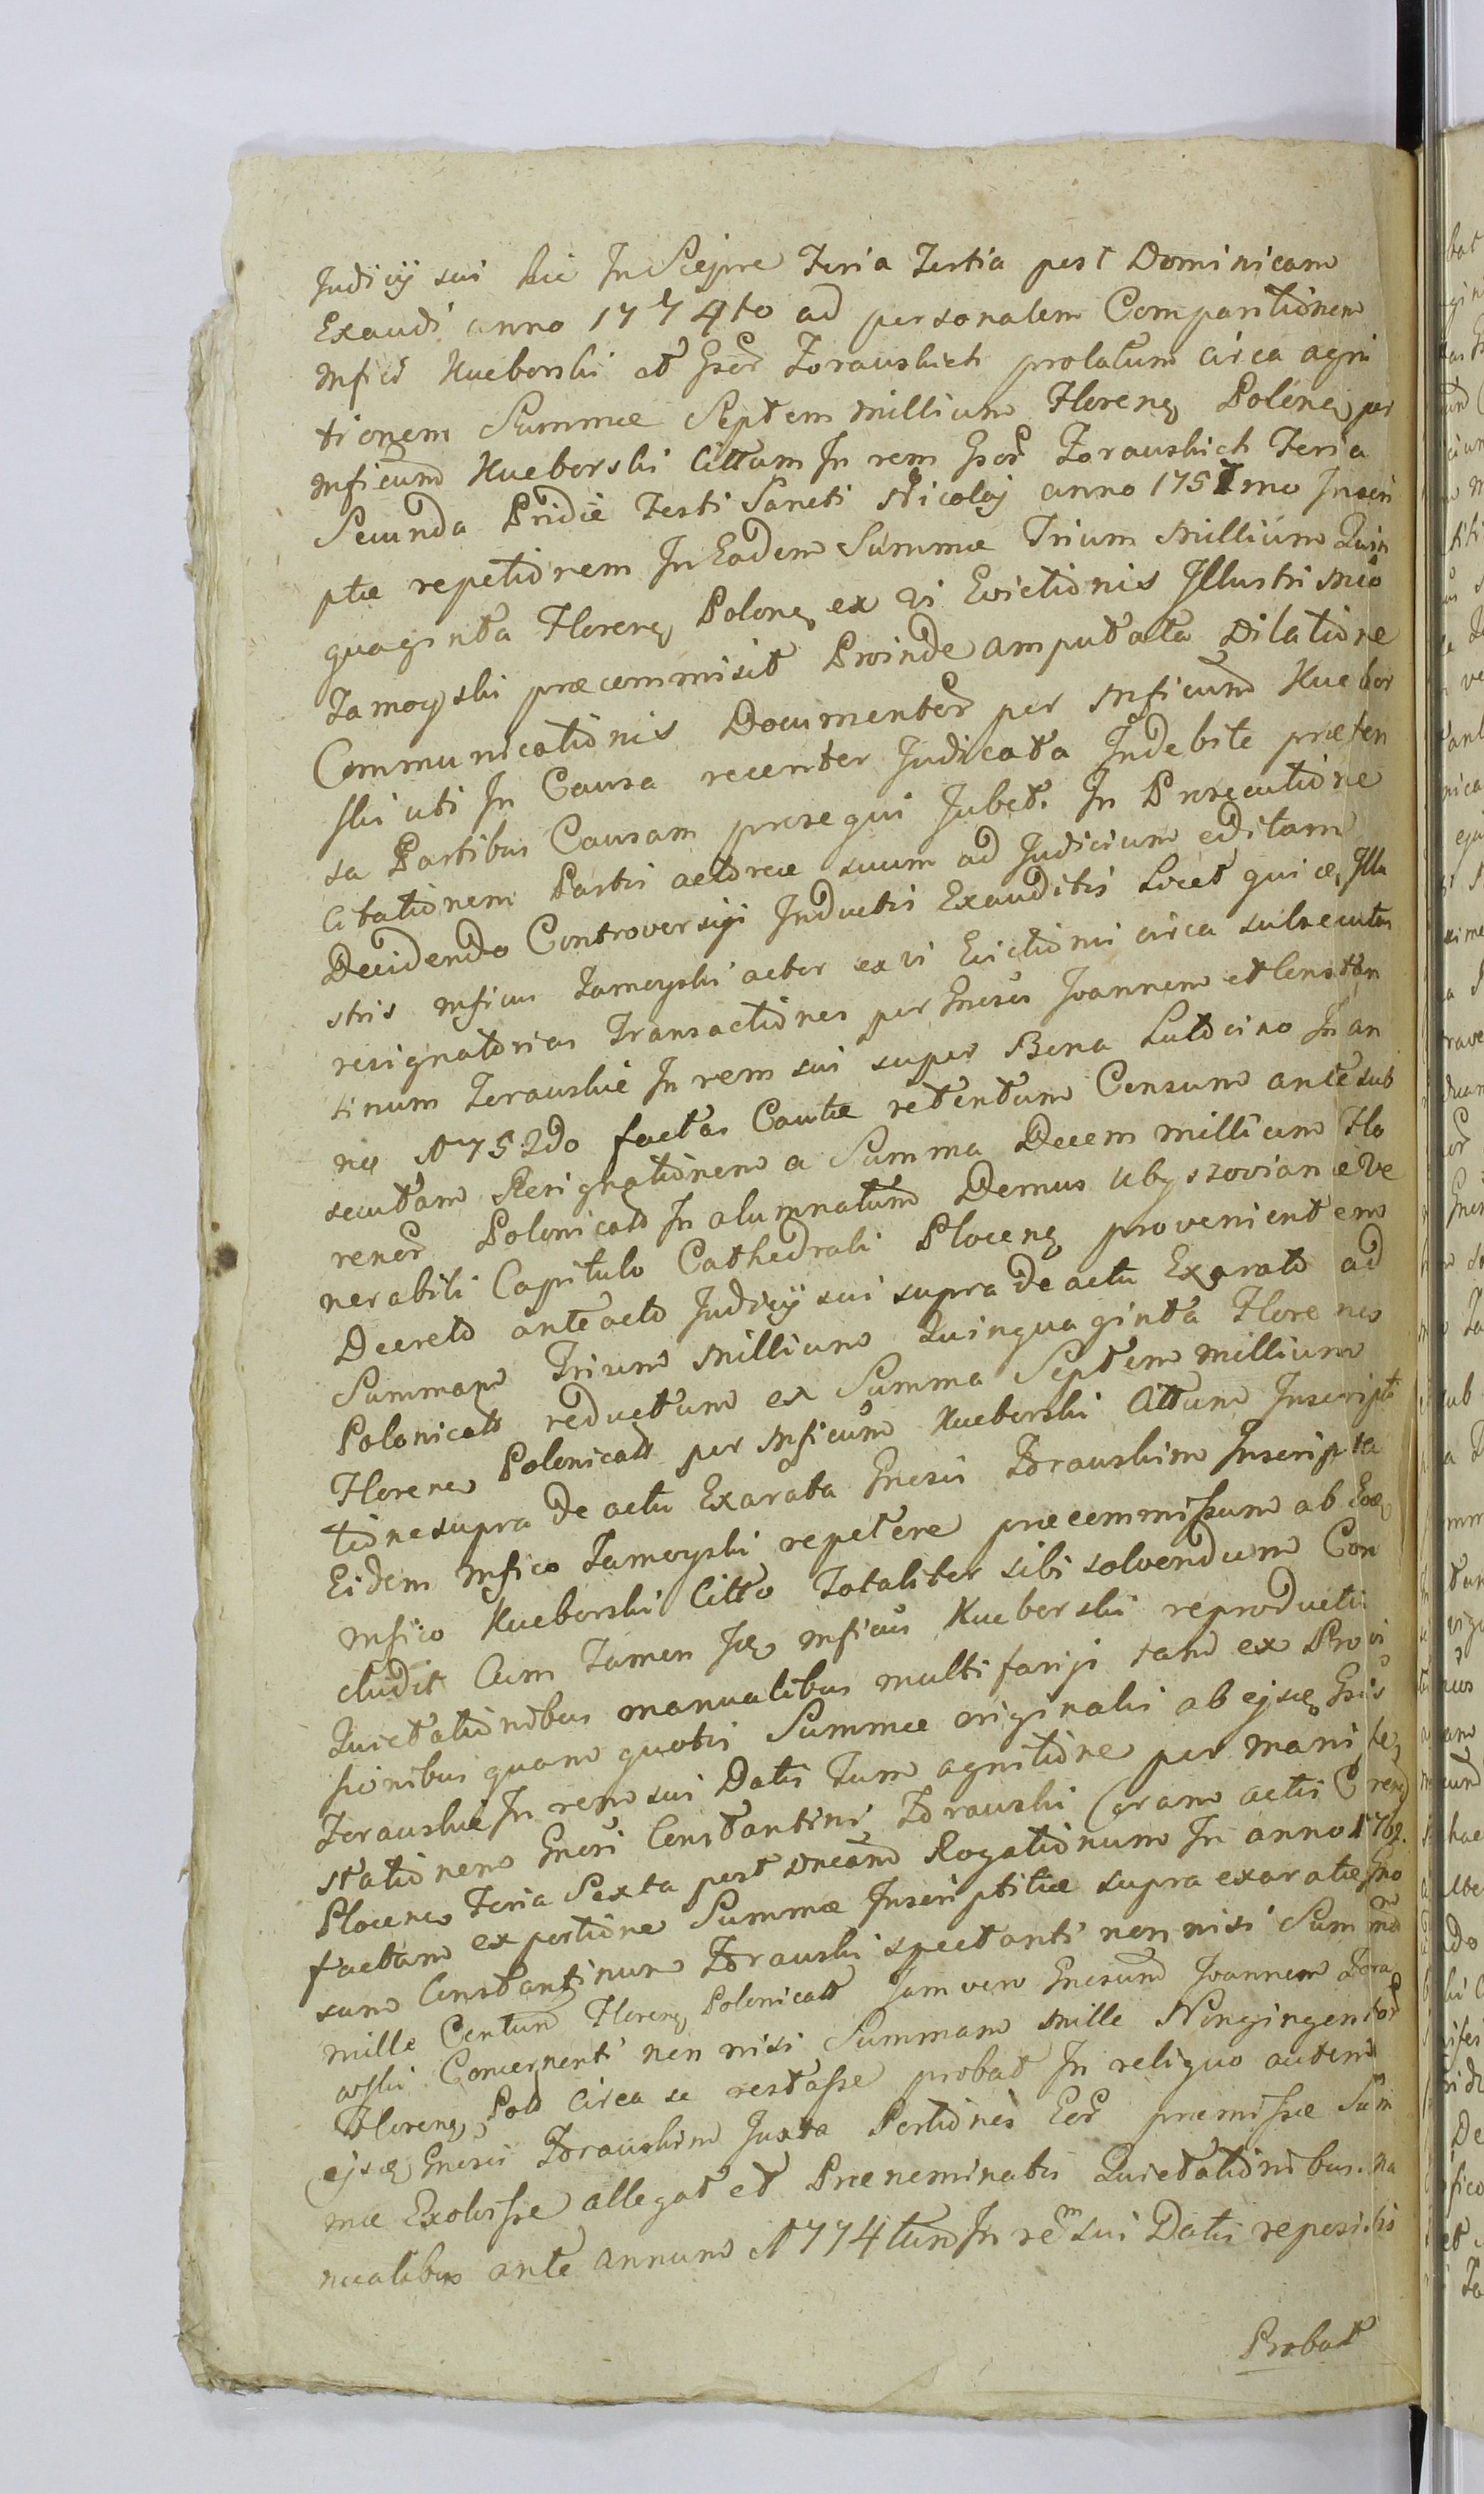 Judicÿ sui hic In Sierpce Feria Tertia post Dominicam
Exaudi anno 1774to ad personalem Comparitionem
Mfici Kueborski et Gsor Zorauskich prolatum circa agni
tionem Summæ Septem millium Floreng Polong per
Mficum Kueborski Cittum In rem Gsor Zorauskich Feria
Secunda Pridie Festi Sancti Nicolaj anno 1757mo Inscri
ptæ repetionem In Eadem Summæ Trium Millium Quin
quaginta Floreng Polong ex vi Evictionis Illustri Mco
Zamoyski præcommisit Proinde amputata Dilatione
Communicationis Documentor per Mficum Kuebor
ski uti In Causa recenter Judicata Indebite præten
sa Partibus Causam prosequi Jubet. In Prosecutione
Citationem Partis actoreæ suum ad Judicium editam
Decidendo Controversÿs Inductis Exauditis Licet quiæ Illu
stris Mficus Zamoyski actor ex vi Evictionis circa subsecutas
resignatorias Transactiones per Gnesos Joannem et Constan
tinum Zorauskie In rem sui super Bona Lutocino In an
no 1752do factas Cautæ retentum Censum ante sub
secutam Resignationem a Summa Decem millium Flo
renor Polonicall In alumnatum Domus Ubyszovianæ Ve
nerabili Capitulo Cathedrali Ploceng provenientem
Decreto ante acto Judicÿ sui supra de actu Exarato ad
Summam Trium Millium Quinquaginta Florenos
Polonicall reductum ex Summa Septem millium
Florenos Polonicall per Mficum Kueborski Cittum Inscripti
tione supra de actu Exarata Gnesis Zorauskim Inscripta
Eidem Mfico Zamoyski repetere præcommissum ab Eoæ
Mfico Kueborski Citto Totaliter sibi solvendum Con
cludit Cum Tamen Jdæ Mficus Kueborski reproductis
Quietationibus manualibus multifarÿs tam ex Provi
sionibus quam quotis Summæ originalis ab ejsæ Gsis
Zorauskie In rem sui Datis Tum agnitione per manife
stationem Gnesi Constantini Zorauski Coram actis C reng
Plocens Feria Sexta post Dncam Rogationum In anno 1762.
factam ex portione Summæ Inscriptitiæ supra exaratæ Gno
sum Constantinum Zorauski spectanti non nisi Summam
mille Centum Floreng Polonicall Jam vero Gnesum Joannem Zora
wski Concernenti non nisi Summam Mille Nongingentor
Floreng Poll circa se restasse probat In reliquo autem
ejsæ Gnesis Zorauskim Juxta Portiones Eor premissæ Sum
mæ Exolvisse allegat et Prænominatis Quietationibus ma
nualibus ante annum 1774tum In rem sui Datis repositis
Probat